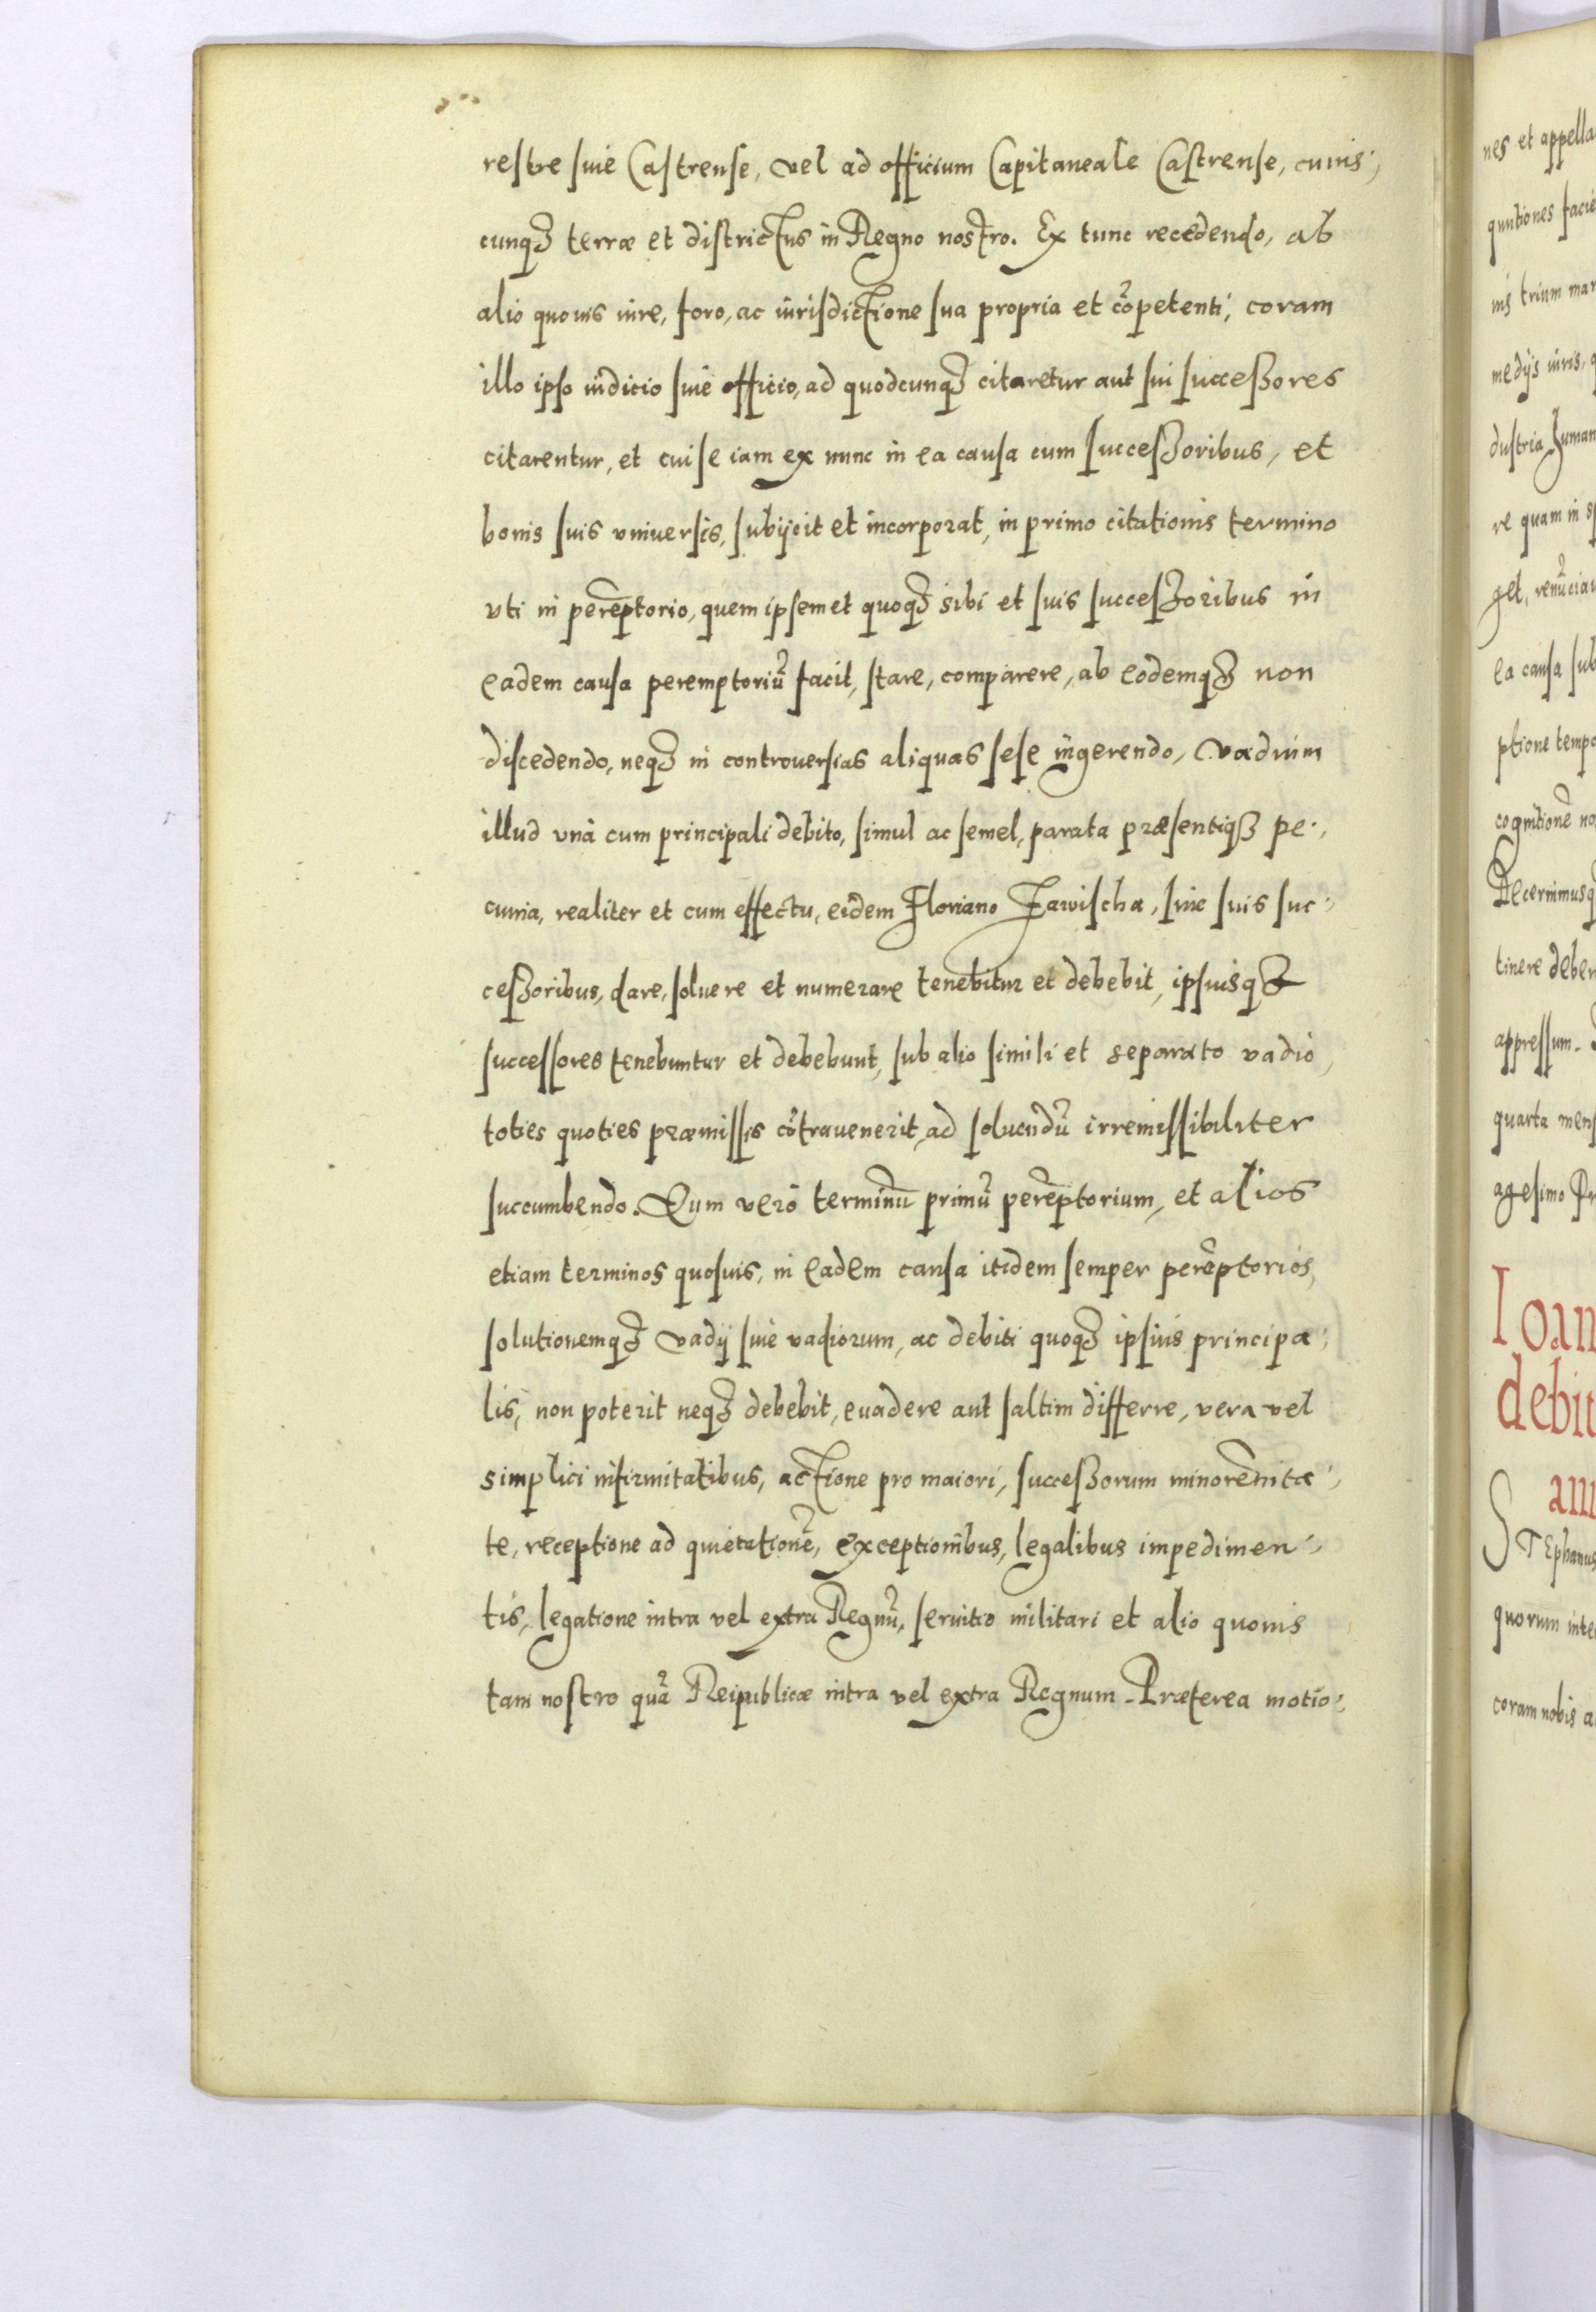 restre siue Castrense, vel ad officium Capitaneale Castrense, cuius,
cunq₃ terræ et districtus in Regno nostro. Ex tunc recedendo, ab
alio quouis iure, foro, ac iurisdictione sua propria et cõpetenti, coram
illo ipso iudicio siue officio, ad quodcunq₃ citaretur aut sui successores
citarentur, et cui se iam ex nunc in ea causa cum successoribus, et
bonis suis vniuersis, subijcit et incorporat, in primo citationis termino
vti in perẽptorio, quem ipsemet quoq₃ sibi et suis successoribus in
eadem causa peremptoriũ facit, stare, comparere, ab eodemq₃ non
discedendo, neq₃ in controuersias aliquas sese ingerendo, vadium
illud vnà cum principali debito, simul ac semel, parata præsentiq₃ pe,
cunia, realiter et cum effectu, eidem Floriano Zawischa, siue suis suc,
cessoribus, dare, soluere et numerare tenebitur et debebit, ipsiusq₃
successores tenebuntur et debebunt, sub alio simili et separato vadio,
toties quoties præmissis cõtrauenerit, ad soluendũ irremissibiliter
succumbendo. Quem verò terminũ primũ perẽptorium, et alios
etiam terminos quosuis, in eadem causa itidem semper perẽptorios,
solutionemq₃ vadij siue vadiorum, ac debiti quoq₃ ipsius principa,
lis, non poterit neq₃ debebit, euadere aut saltim differre, vera vel
simplici infirmitatibus, actione pro maiori, successorum minorẽnita,
te, receptione ad quietationẽ, exceptionibus, legalibus impedimen,
tis, legatione intra vel extra Regnũ, seruitio militari et alio quouis
tam nostro quã Reipublicæ intra vel extra Regnum. Præterea motio,
nes et appella
quutiones facie
nis trium mar
medijs iuris, q
dustria human
re quam in s
get, renũciau
ea causa sub
ptione tempo
cognitionẽ no
Decernimusq
tinere deben
appressum.
quarta mens
agesimo Pr
Ioan
debit
am
STEphanus
quorum inte
coram nobis a